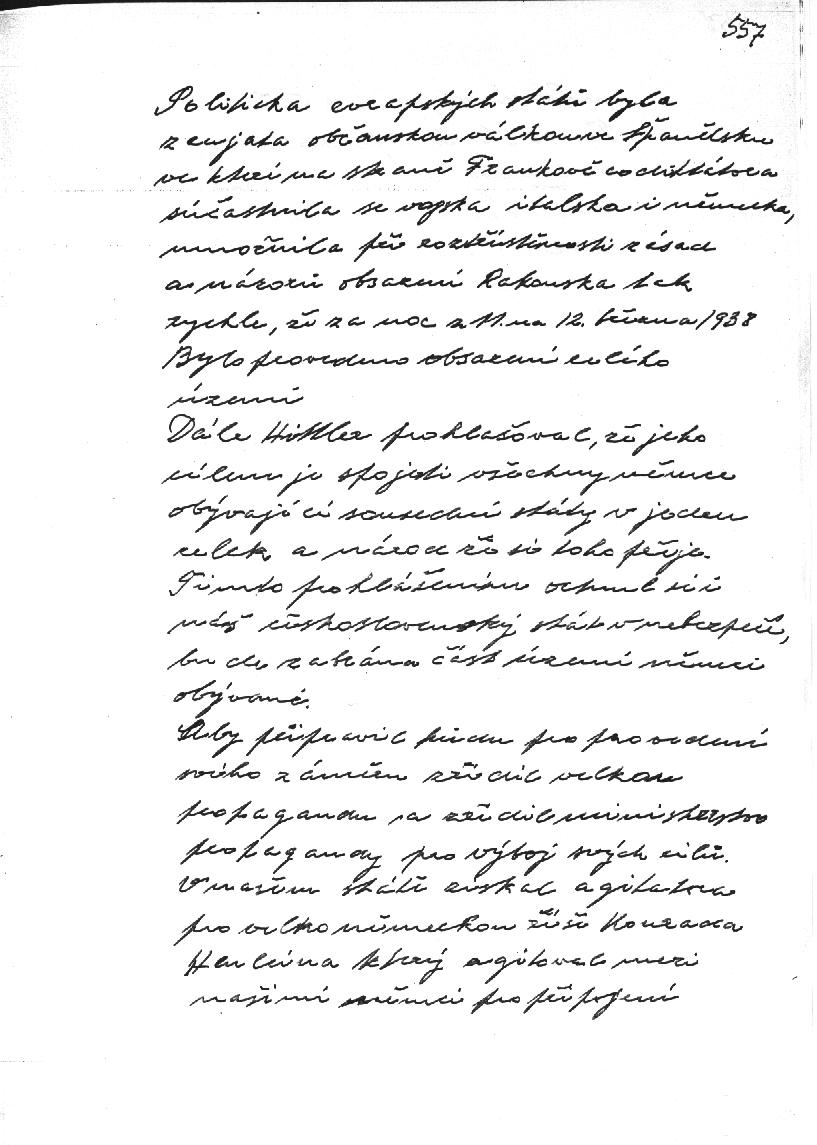 557
Politicka evropských států byla
zaujata občanskou válkou ve Španělsku
ve které na straně Frankově co diktátora
súčastnila se vojska italska i německa,
umočnila při roztříštěnosti zásad
a názorů obsazení Rakouska tak
rychle, že za noc z 11. na 12. března 1938
Bylo provedeno obsazení celého
území
Dále Hittler prohlašoval, že jeho
cílem je spojiti všechny němce
obývající sousední státy v jeden
celek, a národ že si toho přeje.
Tímto prohlášením octnul se i
náš československý stát v nebezpečí,
bude zabrána část území němci
obývané.
Aby připravil půdu pro provedení
svého záměru zřídil velkou
propagandu a zřídil ministerstvo
propagandy pro výboj svých cílů.
V našem státě získal agitatora
pro velkoněmeckou říši Konrada
Henleina který agitoval mezi
našimi němci pro připojení